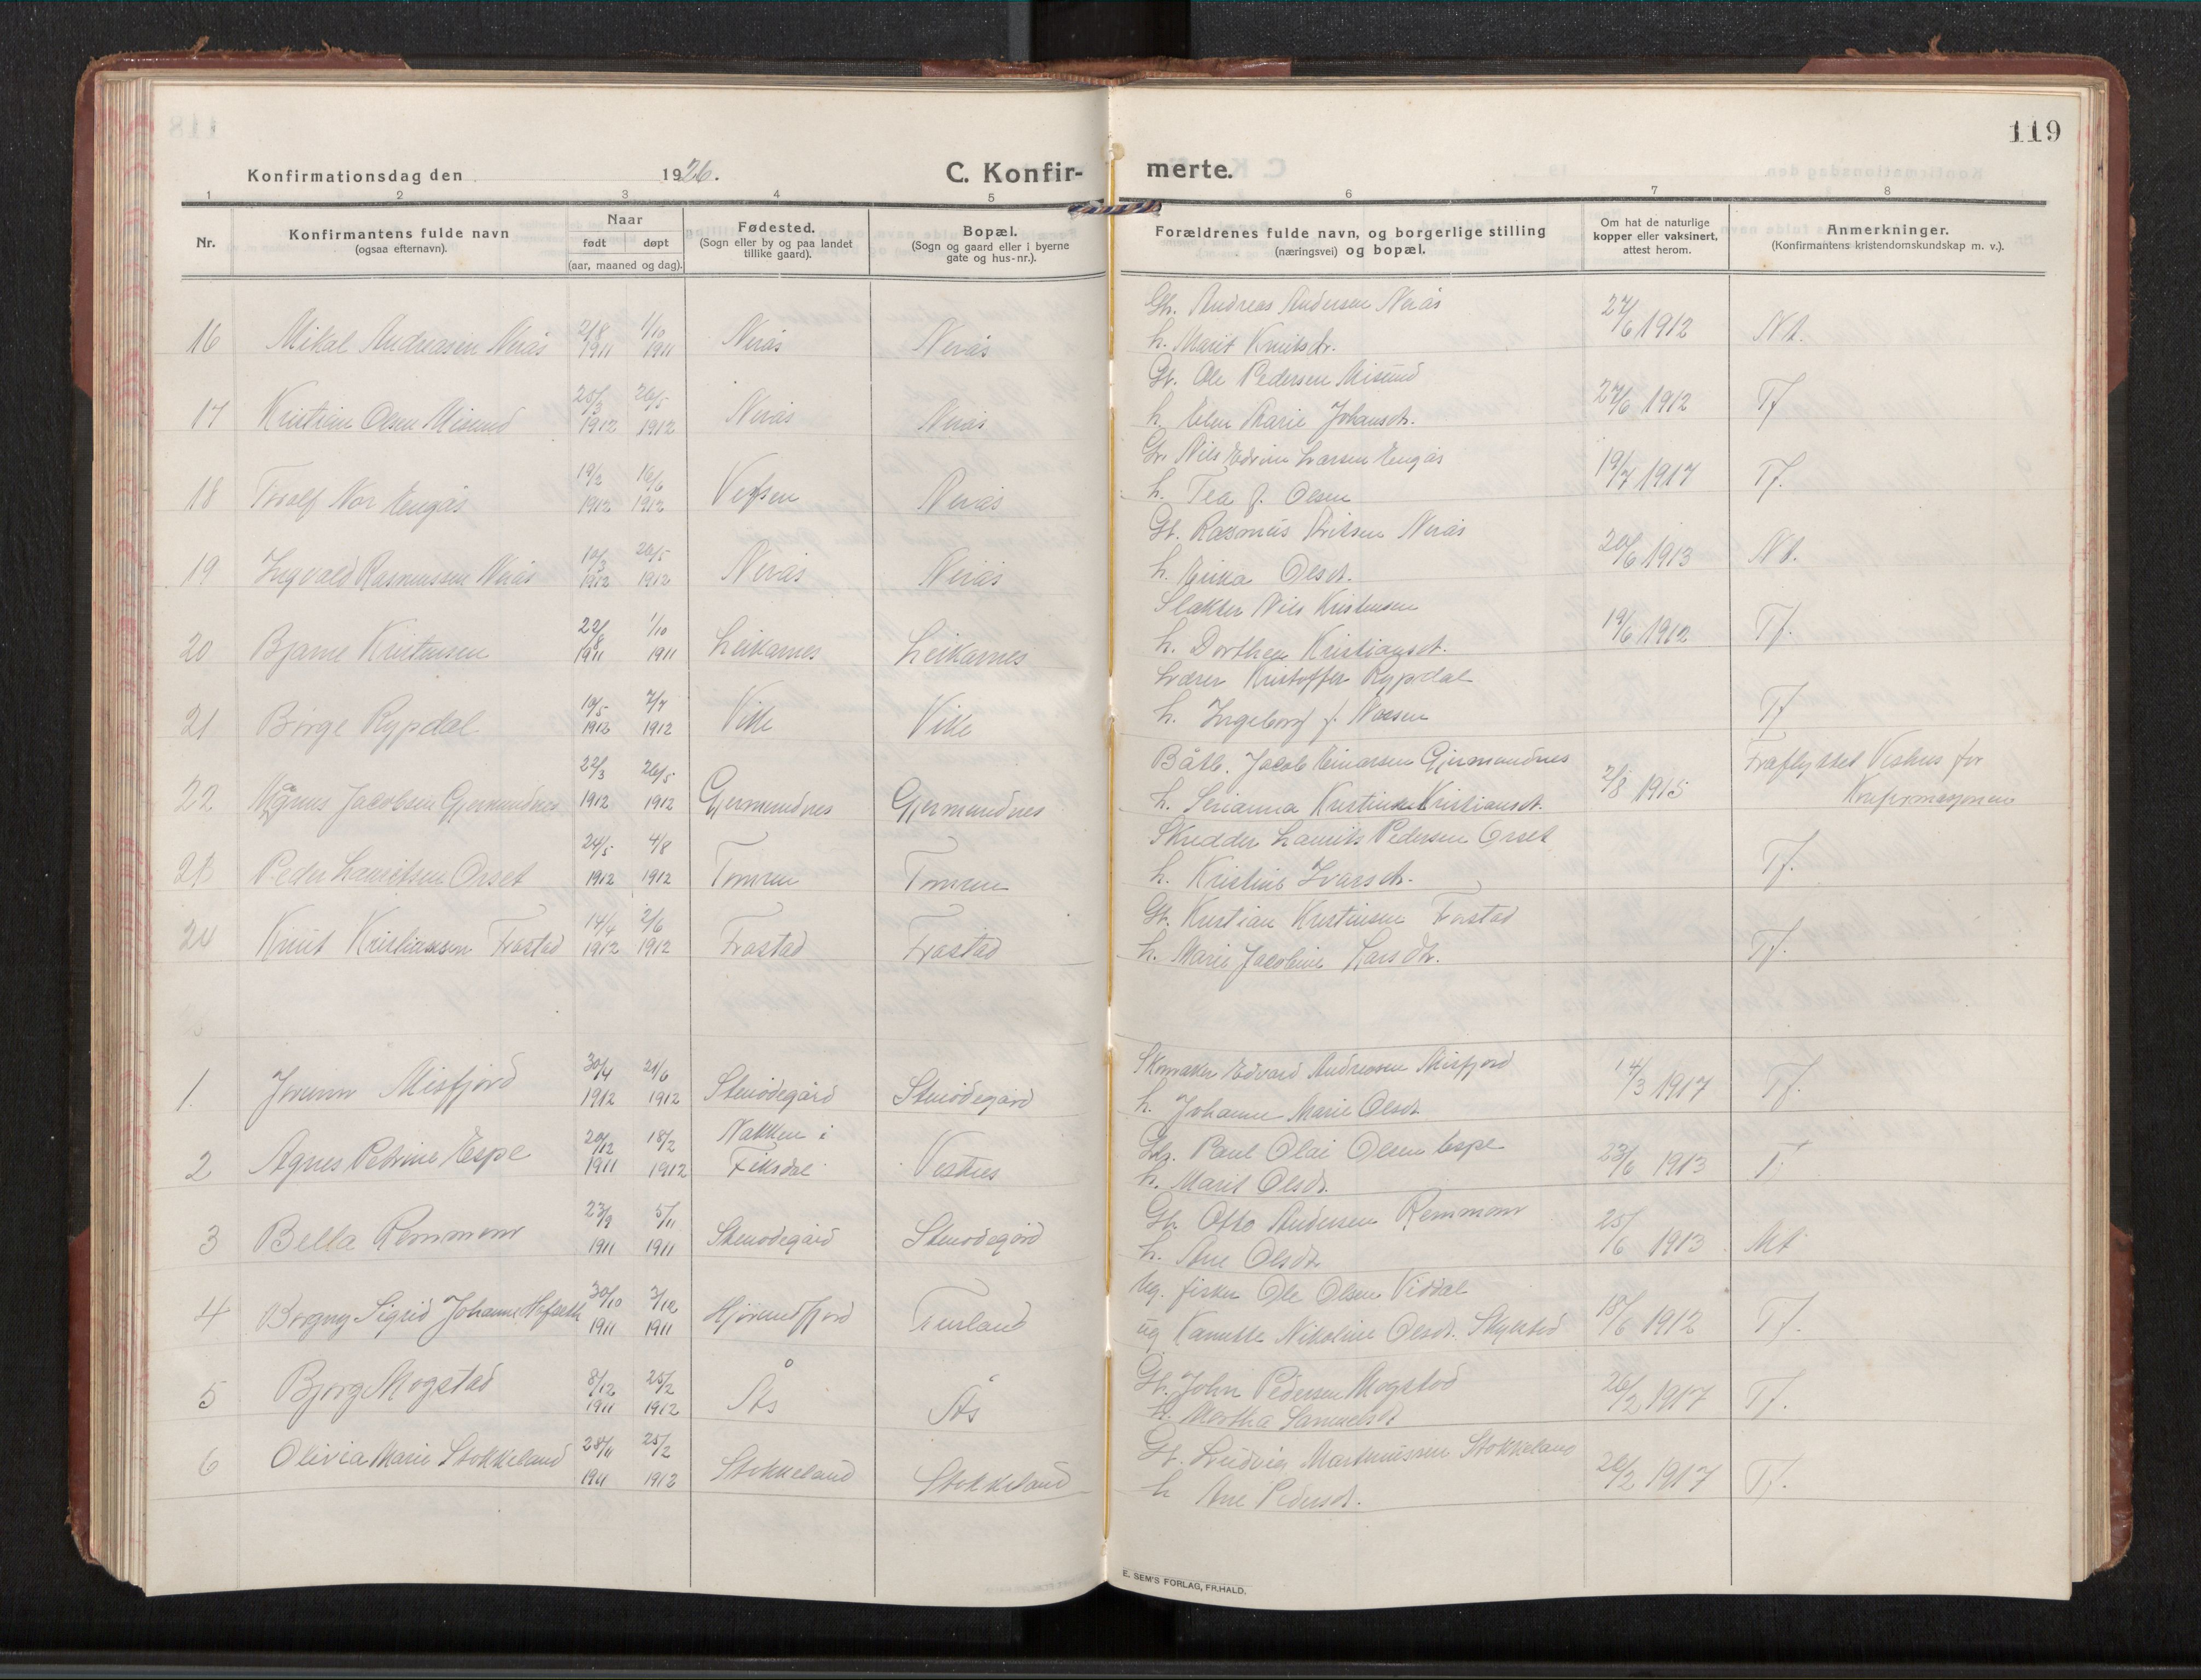 119
Konfirmationsdag den 1926.
C. Konfirmerte.
1 2 3 4 5 6 7 8
Nr.
Konfirmantens fulde navn
(ogsaa efternavn).
Naar
født døpt
(aar, maaned og dag).
Fødested.
(Sogn eller by og paa landet
tillike gaard).
Bopæl.
(Sogn og gaard eller i byerne
gate og hus-nr.).
Forældrenes fulde navn, og borgerlige stilling
(næringsvei) og bopæl.
Om hat de naturlige
kopper eller vaksinert,
attest herom.
Anmerkninger.
(Konfirmantens kristendomskundskap m. v.).
Gb. Andreas Andersen Nerås
16 Mikal Andreasen Nerås 2/8 1911 1/10 1911 Nerås Nerås h. Marit Knutsdr. 27/6 1912 Nt.
Gb. Ole Pedersen Misund
17 Kristian Olsen Misund 25/3 1912 26/5 1912 Nerås Nerås h. Elen Marie Johansdr. 27/6 1912 Tf
Gb. Nils Edvin Larsen Engås
18 Torolf Nor Engås 19/3 1912 16/6 1912 Vefsen Nerås h. Tea f. Olsen 19/7 1917 Tf.
Gb. Rasmus Nerås
19 Ingvald Rasmussen Nerås 10/3 1912 26/5 1912 Nerås Nerås h. Erika Olsdt. 20/6 1913 Nt.
Slakter Nils Kristensen
20 Bjarne Kristensen 22/8 1911 1/10 1911 Leikarnes Leikarnes h. Dorthea Kristiansdt. 19/6 1912 Tf.
Lærer Kristoffer Rypdal
21 Børge Rypdal 19/5 1912 7/7 1912 Ville Ville h. Ingeborg f. Tf
Båtb. Jacob Einarsen Gjermundnes Fraflyttet Vestnes før
22 Magnus Jacobsen Gjermundnes 22/3 1912 26/5 1912 Gjermundnes Gjermundnes h. Serianna Kristine Kristiansdt. 2/8 1915 Konfirmasjonen
Skredder Laurits Pedersen Orset
23 Peder Lauritsen Orset 24/5 1912 4/8 1912 Tomren Tomren h. Kristine Ivarsdr. Tf.
Gb. Kristian Kristensen Frostad
24 Knut Kristiansen Frostad 14/4 1912 2/6 1912 Frostad Frostad h. Marie Jacobine Larsdtr. Tf.
Skomaker Edvard Andreasen Misfjord
1. Jorunn Misfjord 30/4 1912 21/6 1912 Stenødegård Stenødegård h. Johanne Marie Olsdt. 14/3 1917 Tf.
Nakken i Paul Olai Olsen Espe
2 Agnes Petrine Espe 20/12 1911 18/2 1912 Fiksdal Vestnes h. Marit Olsdt. 23/6 1913 T.
Gb. Otto Andersen Remmem
3 Bella Remmem 23/9 1911 5/11 1911 Stenødegård Stenødegård h. Ane Olsdt. 25/6 1913 Mt
Ug. fisker Ole Olsen Viddal
4 Borgny Sigrid Johanne Hofseth 30/10 1911 3/12 1911 Hjørundfjord Furland ug Kanutte Nikoline Olsdt. Skylstad 18/6 1912 Tf.
Gb. John Pedersen Mogstad
5 Bjørg Mogstad 8/12 1911 25/2 1912 Ås Ås h. Martha Samuelsdt 26/2 1917 Tf.
Gb. Ludvig Martinussen Stokkeland
6 Olivia Marie Stokkeland 28/11 1911 25/2 1912 Stokkeland Stokkeland h Ane Pedersdt. 26/2 1917 Tf.
E. SEM'S FORLAG, FR.HALD.